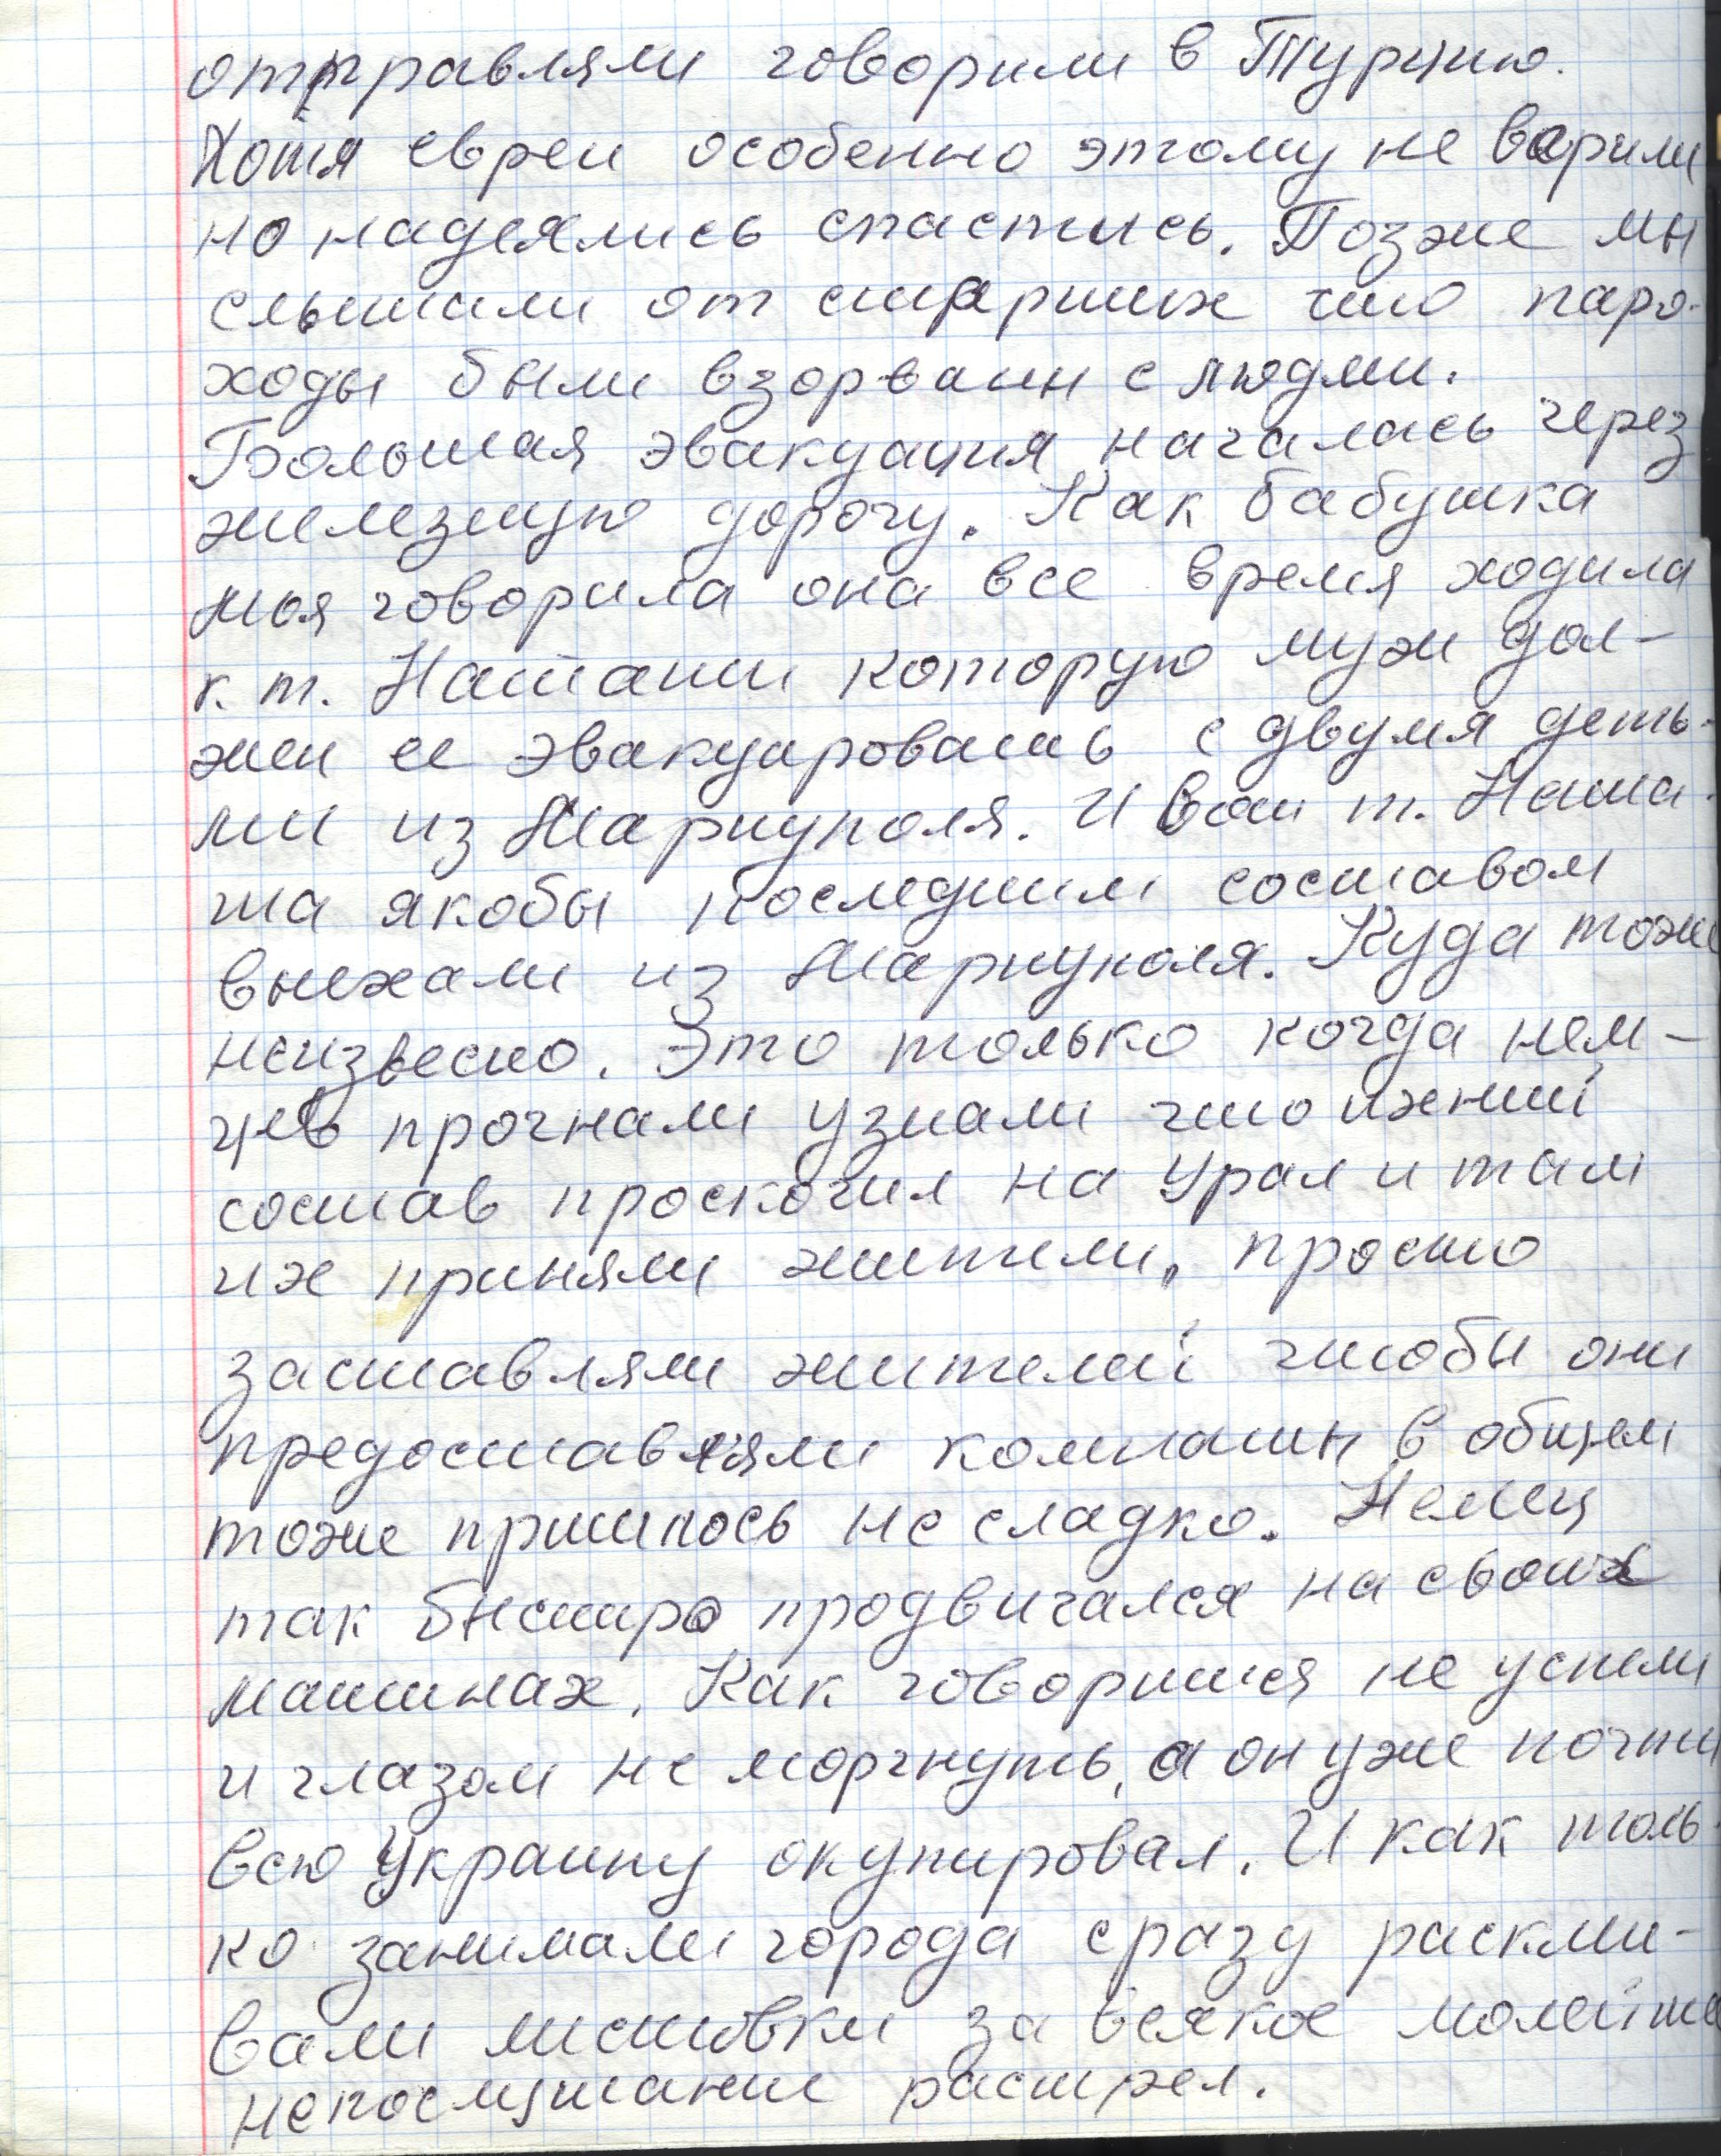 отправляли говорили в Турцию.
Хотя евреи особенно этому не верили
но надеялись спастись. Позже мы
слышали от старших что паро-
ходы были взорваны с людми.
Большая эвакуация началась через
железную дорогу. Как бабушка
моя говорила она все время ходила
к т. Наташи которую муж дол-
жен ее эвакуировать с двумя деть-
ми из Мариуполя. И вот т. Ната-
ша якобы последним составом
выехали из Мариуполя. Куда тоже
неизвесно. Это только когда нем-
цев прогнали узнали что ихний
состав проскочил на Урал и там
их приняли жители, просто
заставляли жителей чтобы они
предоставляли компаты в общем
тоже пришлось не сладко. Немец
так быстро продвигался на своих
машинах. Как говорится не успели
и глазом не моргнуть, а он уже почти
всю Украину окупировал. И как толь-
ко занимали города сразу раскли-
вали листовки за всякое
непослушание растрел.